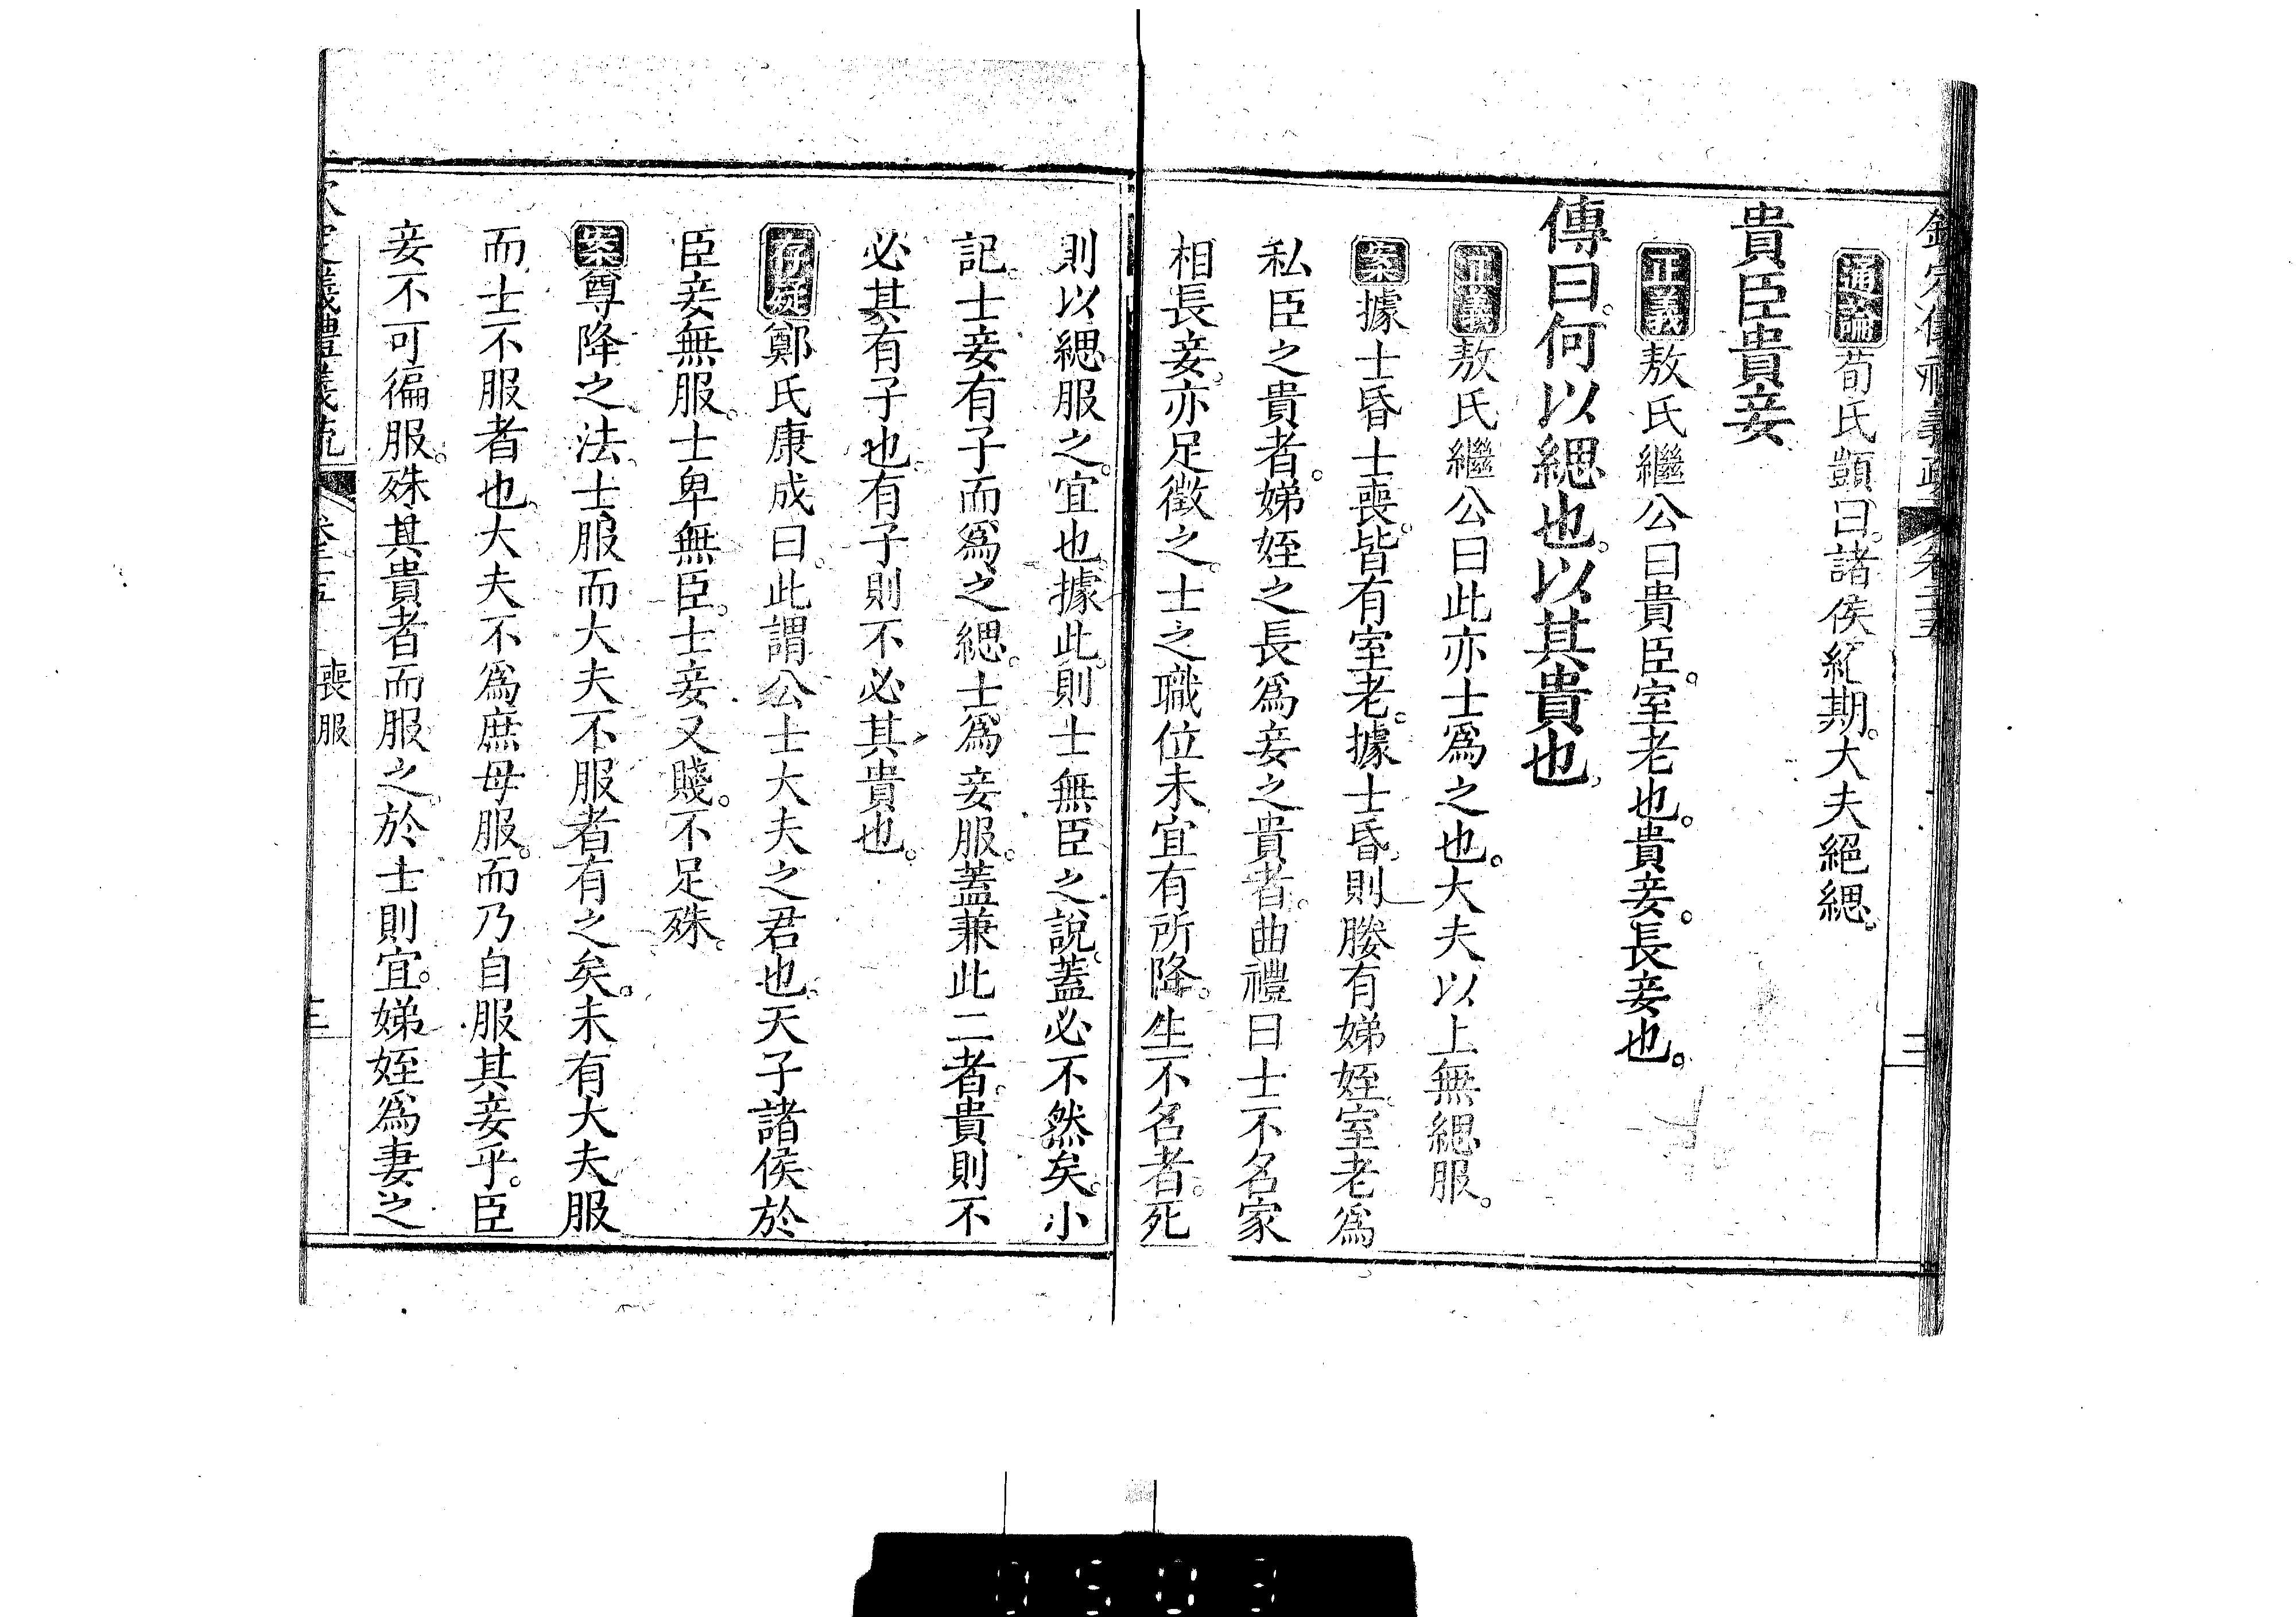 通論荀氏顗曰。諸侯絕期。大夫絕緦。
貴臣貴妾
正義敖氏繼公曰貴臣。室老也。貴妾。長妾也。
傳曰。何以緦也。以其貴也。
正義敖氏繼公曰此亦士爲之也。大夫以上無緦服。
案據士昏士喪。皆有室老。據士昏。則媵有娣姪。室老爲
私臣之貴者。娣姪之長爲妾之貴者。曲禮曰士不名家
相長妾。亦足徵之。士之職位未宜有所降。生不名者。死
則以緦服之。宜也。據此。則士無臣之說。蓋必不然矣。小
記。士妾有子而爲之緦。士爲妾服。蓋兼此二者。貴則不
必其有子也。有子則不必其貴也。
存疑鄭氏康成曰。此謂公士大夫之君也。天子諸侯於
臣妾無服。士卑無臣。士妾又賤。不足殊。
案尊降之法。士服而大夫不服者有之矣。未有大夫服
而士不服者也。大夫不爲庶母服。而乃自服其妾乎。臣
妾不可徧服。殊其貴者而服之。於士則宜。娣姪爲妻之
欽定儀禮義疏 卷二十五 喪服 三